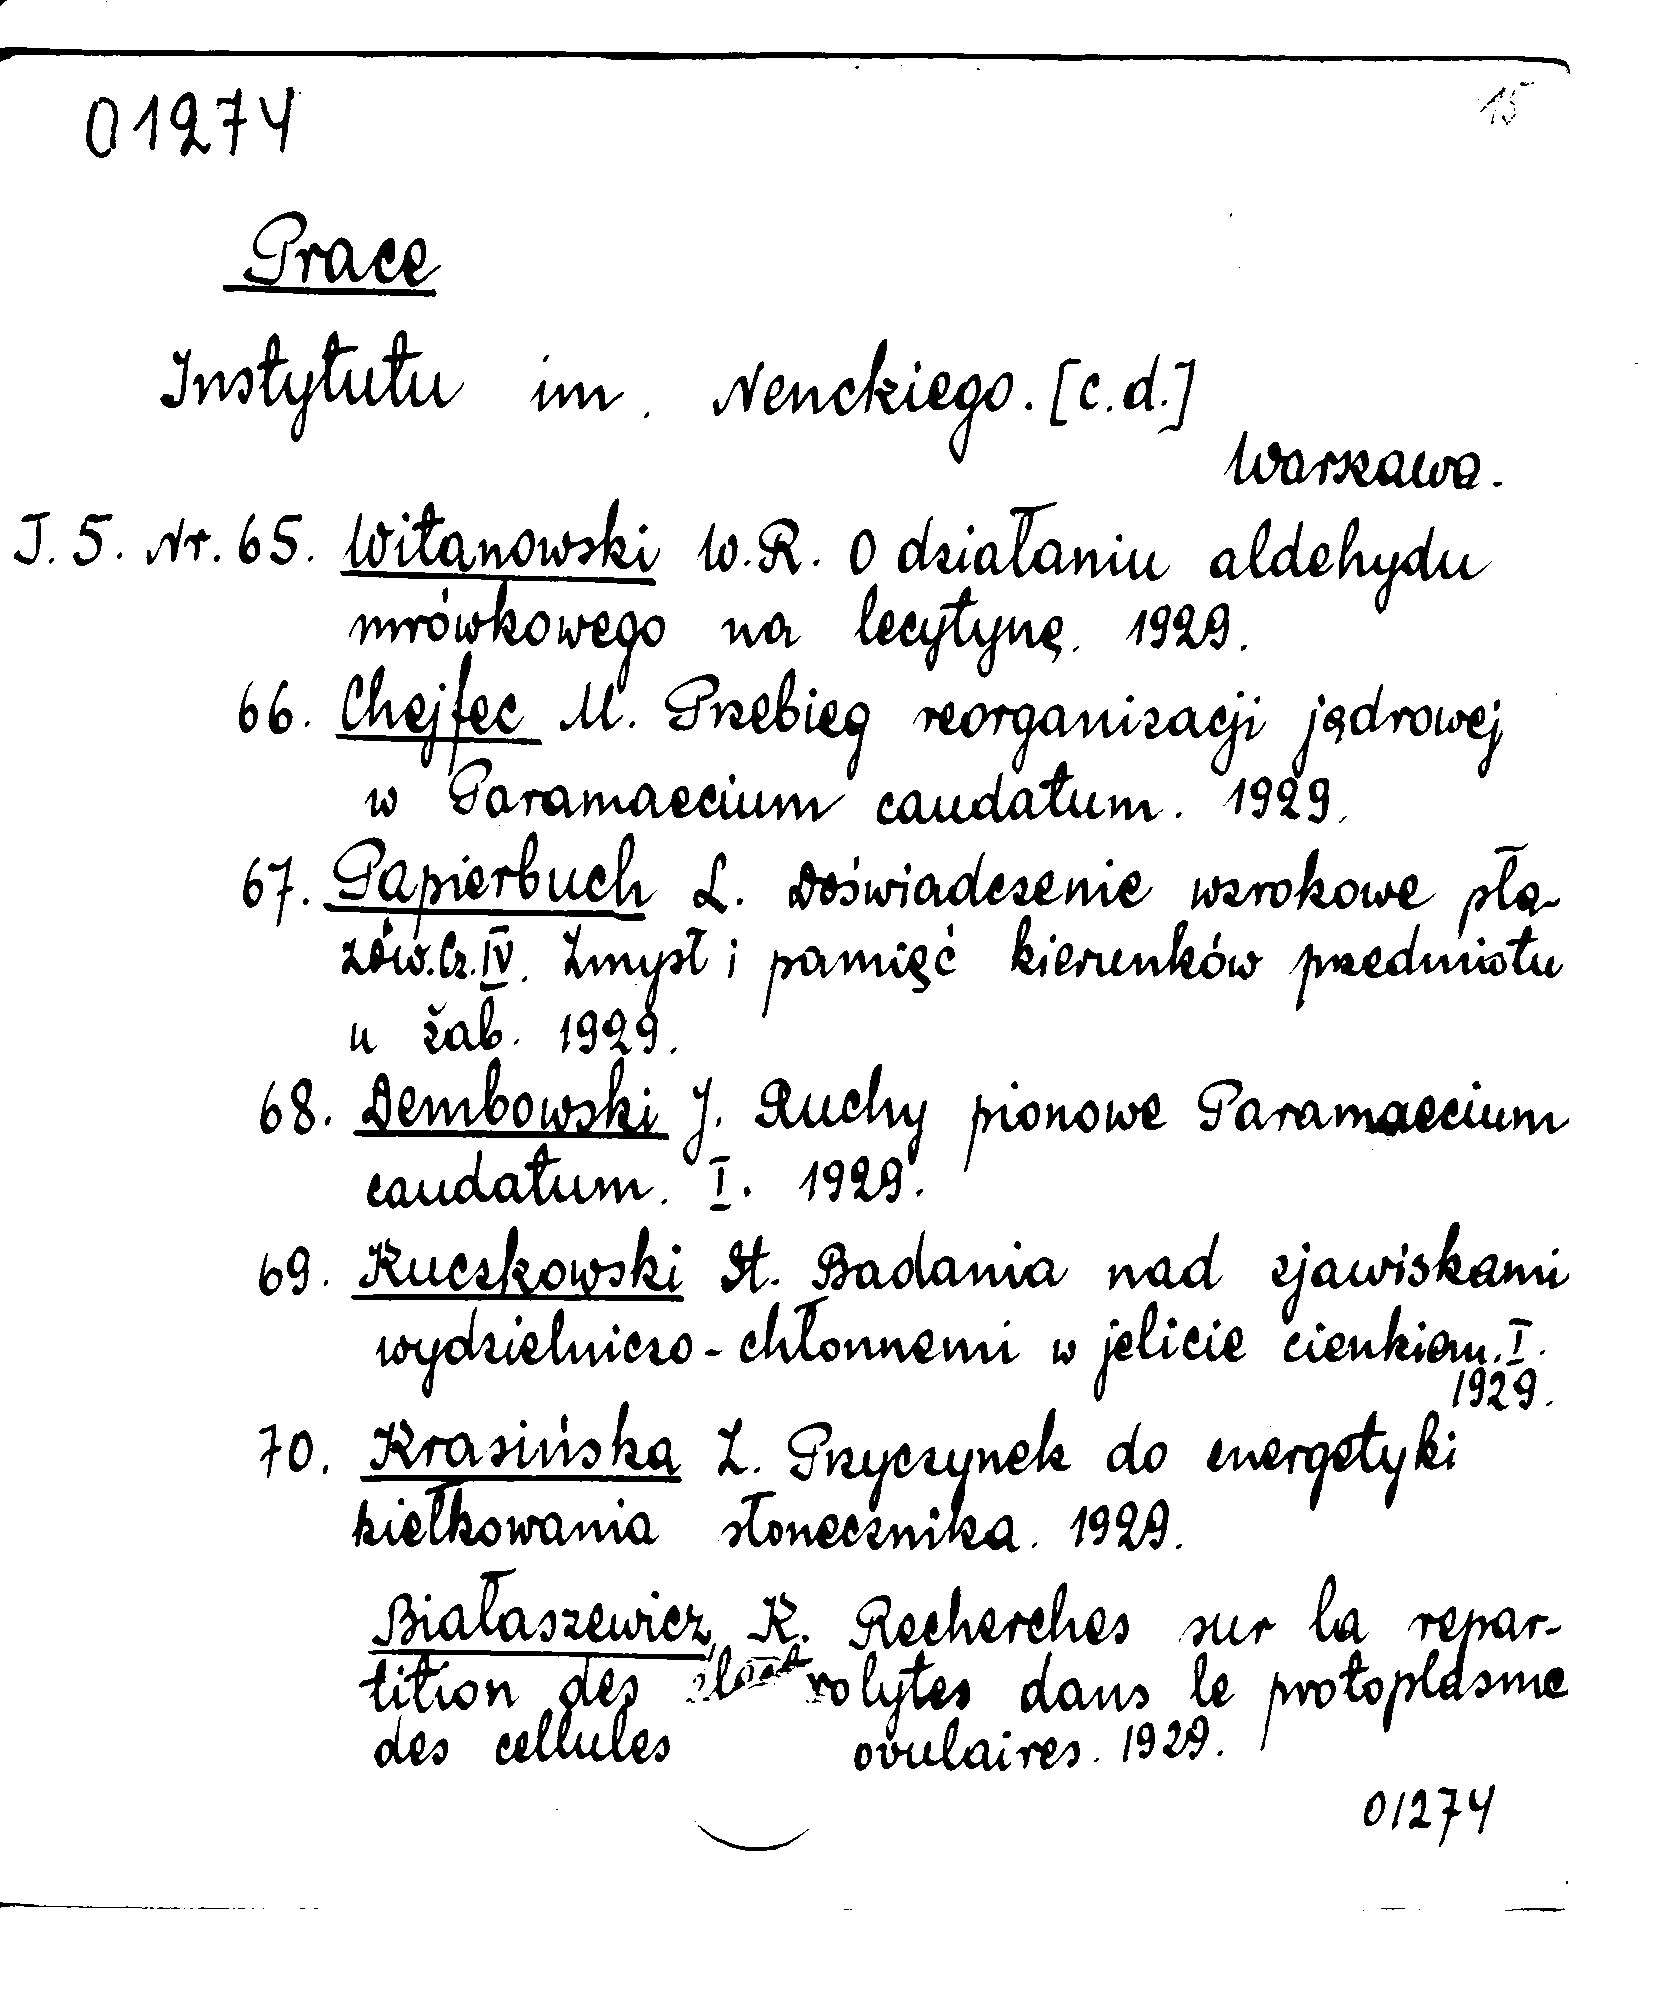 01274
15
Prace
Instytutu im. Nenckiego. [c.d.]
Warszawa.
T. 5. Nr. 65. Witanowski W.R. O działaniu aldehydu
mrówkowego na lecytynę. 1929.
66. Chejfec M. Przebieg reorganizacji jądrowej
w Paramaecium caudatum. 1929.
67. Papierbuch L. Doświadczenie wzrokowe pła-
zów. Cz. IV. Zmysł i pamięć kierunków przedmiotu
u żab. 1929.
68. Dembowski J. Ruchy pionowe Paramaecium
caudatum. I. 1929.
69. Kuczkowski St. Badania nad zjawiskami
wydzielniczo-chłonnemi w jelicie cienkiem. I.
1929.
70. Krasińska Z. Przyczynek do energetyki
kiełkowania słonecznika. 1929.
Białaszewicz, K. Recherches sur la repar-
tition des electrolytes dans le protoplasme
des cellules ovulaires. 1929.
01274